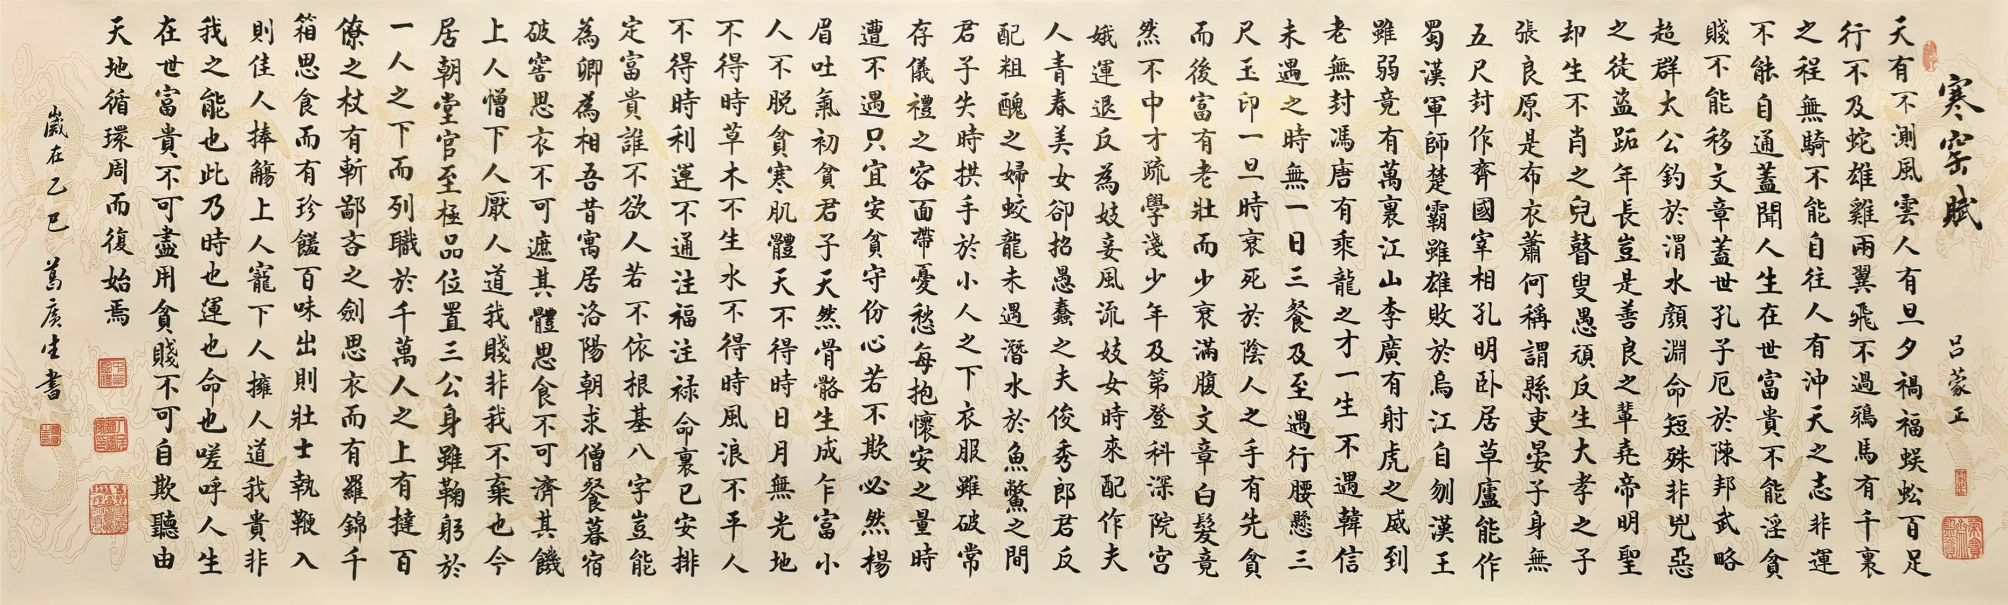 寒窑賦
呂蒙正
天有不測風雲人有旦夕禍福蜈蚣百足
行不及蛇雄雞兩翼飛不過鴉馬有千裏
之程無騎不能自往人有沖天之志非運
不能自通蓋聞人生在世富貴不能淫貧
賤不能移文章蓋世孔子厄於陳邦武略
超群太公釣於渭水顏淵命短殊非兇惡
之徒盗跖年長豈是善良之輩堯帝明聖
却生不肖之兒瞽叟愚頑反生大孝之子
張良原是布衣蕭何稱謂縣吏晏子身無
五尺封作齊國宰相孔明卧居草廬能作
蜀漢軍師楚霸雖雄敗於烏江自刎漢王
雖弱竟有萬裏江山李廣有射虎之威到
老無封馮唐有乘龍之才一生不遇韓信
未遇之時無一日三餐及至遇行腰懸三
尺玉印一旦時衰死於陰人之手有先貧
而後富有老壯而少衰滿腹文章白髮竟
然不中才疏學淺少年及第登科深院宮
娥運退反為妓妾風流妓女時來配作夫
人青春美女卻招愚蠢之夫俊秀郎君反
配粗醜之婦蛟龍未遇潛水於魚鱉之間
君子失時拱手於小人之下衣服雖破常
存儀禮之容面帶憂愁每抱懷安之量時
遭不遇只宜安貧守份心若不欺必然楊
眉吐氣初貧君子天然骨骼生成乍富小
人不脱貧寒肌體天不得時日月無光地
不得時草木不生水不得時風浪不平人
不得時利運不通注福注禄命裏已安排
定富貴誰不欲人若不依根基八字豈能
為卿為相吾昔寓居洛陽朝求僧餐暮宿
破窖思衣不可遮其體思食不可濟其饑
上人憎下人厭人道我賤非我不棄也今
居朝堂官至極品位置三公身雖鞠躬於
一人之下而列職於千萬人之上有撻百
僚之杖有斬鄙吝之劍思衣而有羅錦千
箱思食而有珍饈百味出則壯士執鞭入
則佳人捧觴上人寵下人擁人道我貴非
我之能也此乃時也運也命也嗟呼人生
在世富貴不可盡用貧賤不可自欺聽由
天地循環周而復始焉
歲在乙巳
萬廣生書